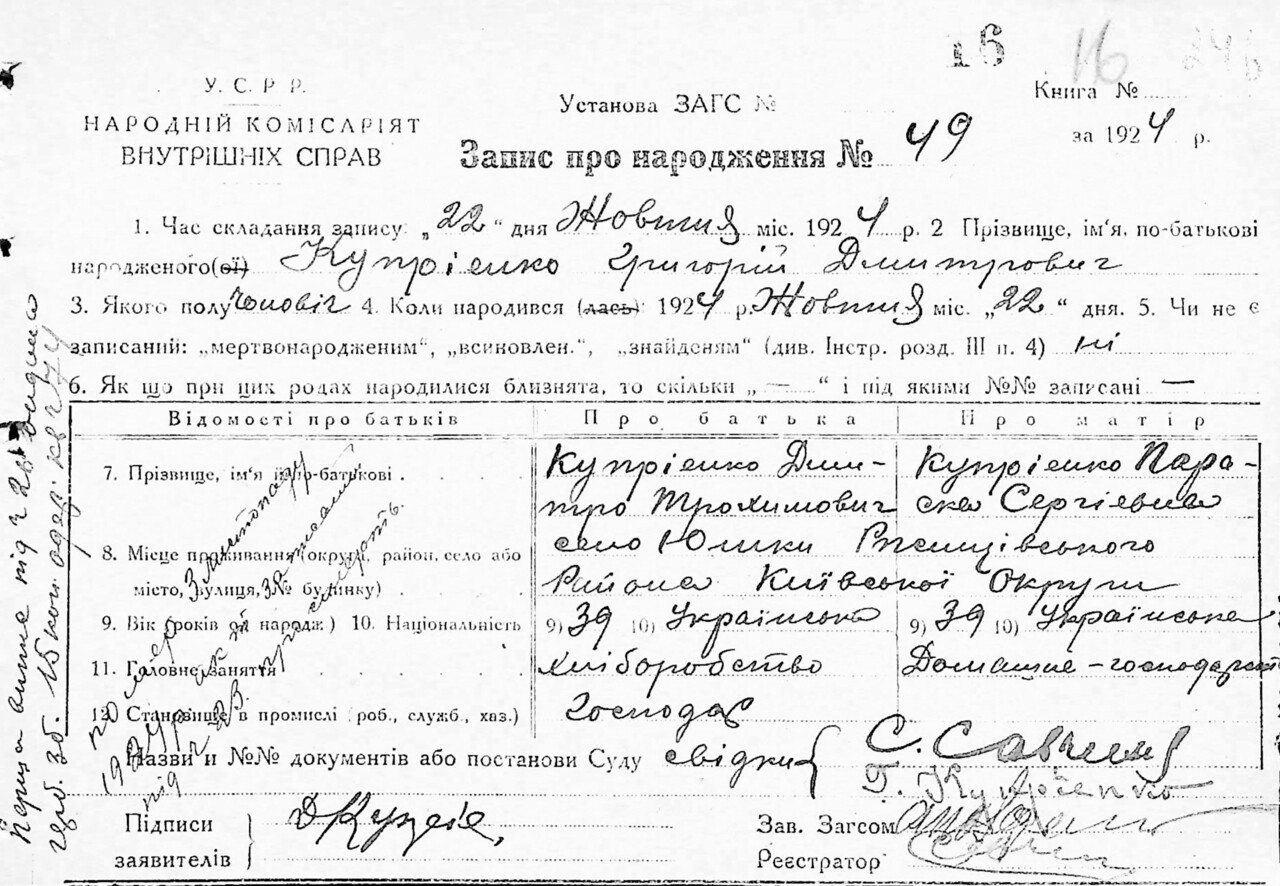 16 16 246
У. С. Р. Р.
НАРОДНІЙ КОМІСАРІЯТ
ВНУТРІШНІХ СПРАВ
Установа ЗАГС №
Книга №
за 1924 р.
Запис про народження № 49
1. Час складання запису: „22“ дня Жовтня міс. 1924 р. 2 Прізвище, ім'я, по-батькові
народженого(ої) Купрієнко Григорій Дмитрович
3. Якого полу чоловіч 4. Коли народився (лась): 1924 р. Жовтня міс. „22“ дня. 5. Чи не є
записаний: „мертвонародженим“, „всиновлен.“, „знайденям“ (див. Інстр. розд. III п. 4) ні
6. Як що при цих родах народилися близнята, то скільки „ — “ і під якими №№ записані —
Відомості про батьків Про батька Про матір
7. Прізвище, ім'я й по-батькові
Купрієнко Дми-
тро Трохимович
Купрієнко Пара-
ска Сергієвна
8. Місце проживання (округа, район, село або
місто, вулиця, № будинку)
село Юшки Ржищівського
Района Київської Округи
9. Вік (років від народж.) 10. Національність 9) 39 10) Українська 9) 39 10) Українська
11. Головне заняття хліборобство Домашнє-господарст
12. Становище в промислі (роб., служб., хаз.) Господар
Назви и №№ документів або постанови Суду свідки
С. Савчин
Г. Купрієнко
Підписи
заявителів
Зав. Загсом
Реєстратор
20
1924 р.
під
смерть.
Перша під № 26 видана
15 74